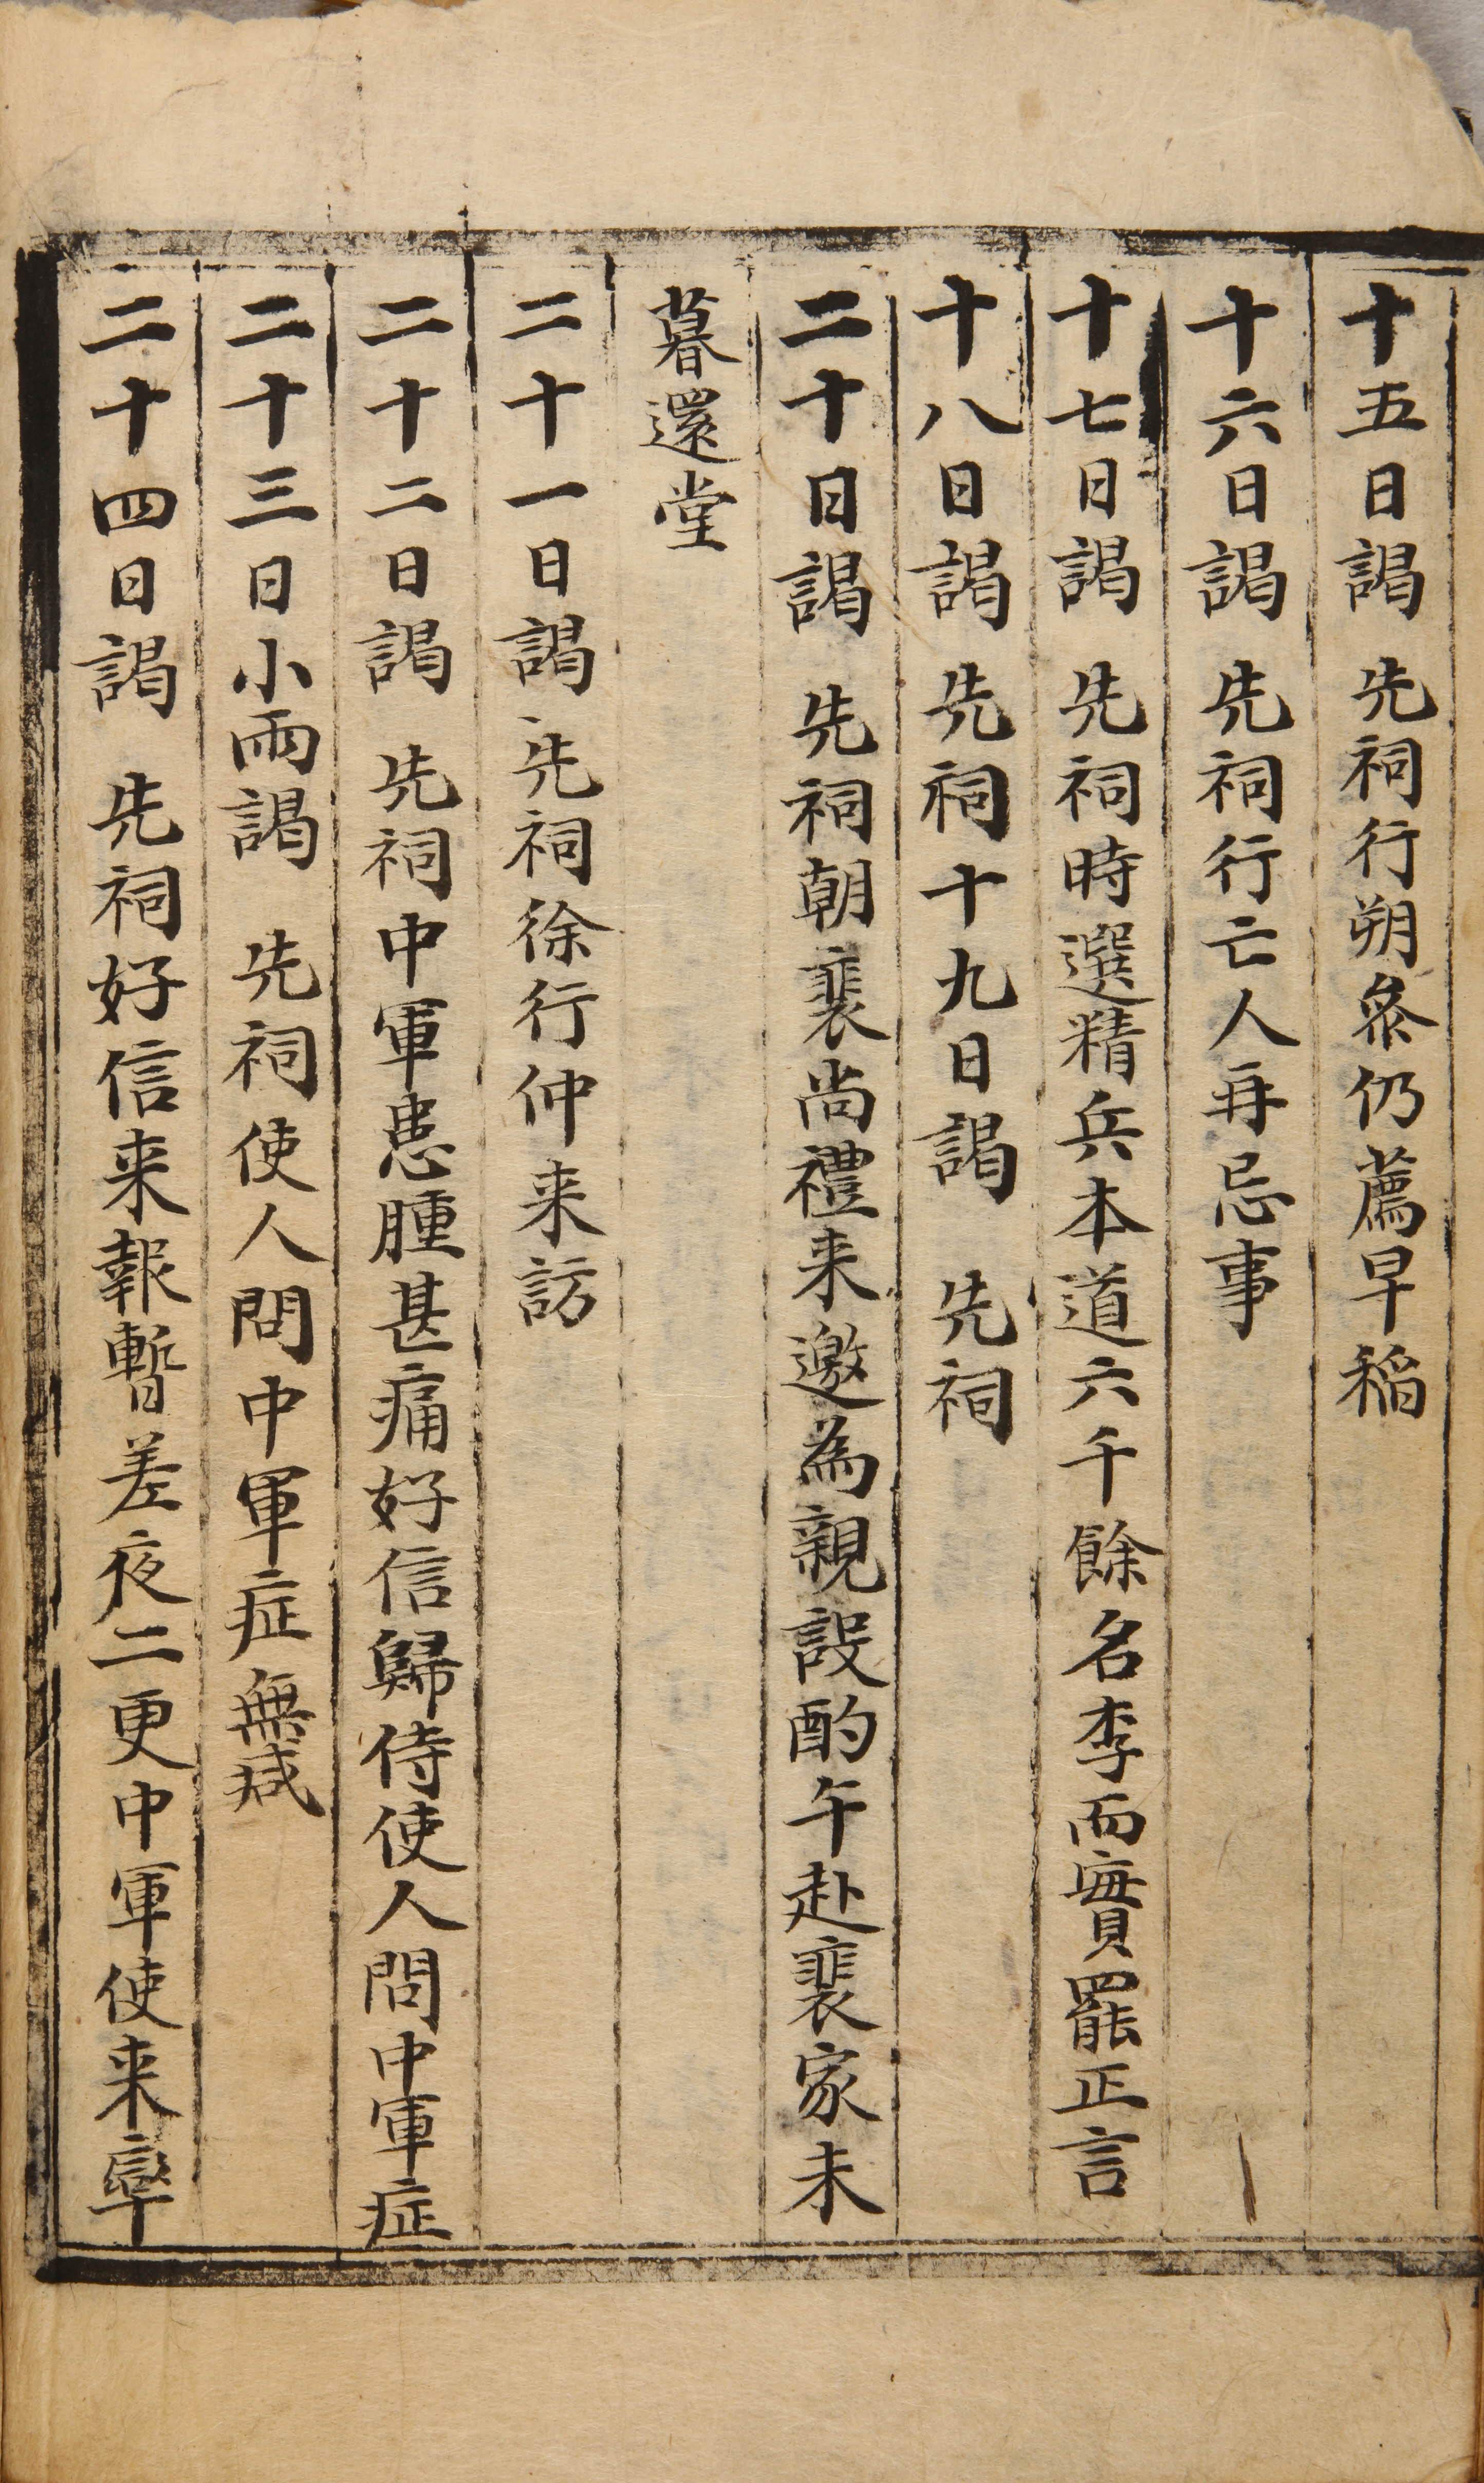 十五日謁 先祠行朔叅仍薦早稻
十六日謁 先祠行亡人再忌事
十七日謁 先祠時選精兵本道六千餘名李而實罷正言
十八日謁 先祠十九日謁 先祠
二十日謁 先祠朝裵尙禮来邀為親設酌午赴裵家未
暮還堂
二十一日謁 先祠徐行仲来訪
二十二日謁 先祠中軍患腫甚痛好信歸侍使人問中軍症
二十三日小雨謁 先祠使人問中軍症無减
二十四日謁 先祠好信来報暫差夜二更中軍使来